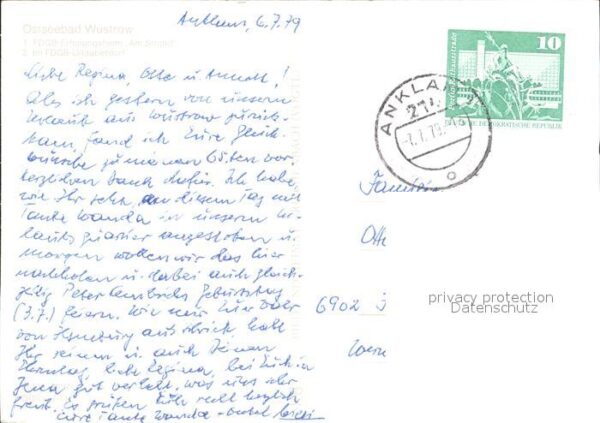 Anklam, 6.7.79
Ostseebad Wustrow
1. FDGB-Erholungsheim „Am Strand"
2. Im FDGB-Urlauberdorf
Liebe Regina, Otto u. Annett!
Als ich gestern von unserm
Urlaub aus Wustrow zurück-
kam, fand ich Eure Glück-
wünsche zu meinem 65sten vor.
herzlichen Dank dafür. Ich habe,
wie Ihr seht, an diesem Tag mit
Tante Wanda in unserm Ur-
laubsquartier angestoßen u.
morgen wollen wir das hier
nachholen u. dabei auch gleich-
zeitig Peter Geburtstag
(3.7.) feiern. Wie mir Euer Vater
von Ilmenburg aus schrieb habt
Ihr seinen u. auch Deinen
Ehrentag, liebe Regina, bei Euch in
Jena gut verlebt, was uns sehr
freut. Es grüßen Euch recht herzlich
Eure Tante Wanda - Onkel
10
DEUTSCHE DEMOKRATISCHE REPUBLIK
ANKLAM 1
214
-7.7.79
Familie
Otto
6902 J
privacy protection
Datenschutz